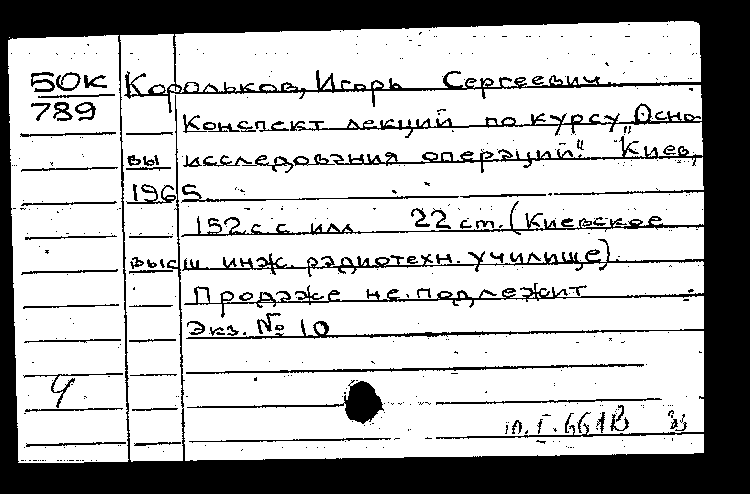 50К Корольков, Игорь Сергеевич.
789
Конспект лекций по курсу „Осно-
вы исследования операций." Киев,
1965
152 с. с илл. 22 ст. (Киевское
высш. инж. радиотехн. училище).
Продаже не подлежит
Экз. № 10